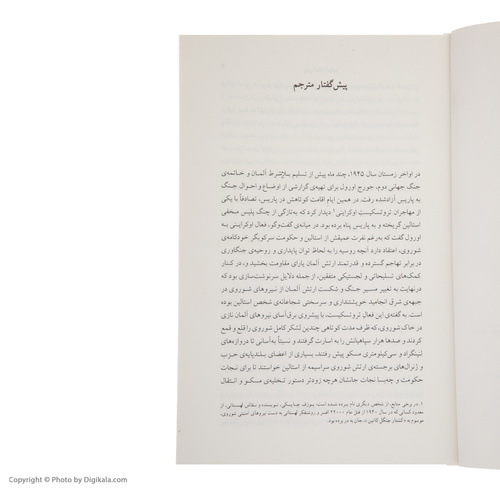 پیش‌گفتار مترجم
در اواخر زمستان سال ۱۹۴۵، چند ماه پیش از تسلیم بلاشرط آلمان و خاتمه‌ی
جنگ جهانی دوم، جورج اورول برای تهیه‌ی گزارشی از اوضاع و احوال جنگ
به پاریس آزادشده رفت. در همین ایام اقامت کوتاهش در پاریس، تصادفاً با یکی
از مهاجران تروتسکیستِ اوکراینی۱ دیدار کرد که به‌تازگی از چنگ پلیس مخفی
استالین گریخته و به پاریس پناه برده بود. در میانه‌ی گفت‌وگو، فعال اوکراینی به
اورول گفت که به‌رغم نفرت عمیقش از استالین و حکومت سرکوبگر خودکامه‌ی
شوروی، اعتقاد دارد آنچه روسیه را به لحاظ توان پایداری و روحیه‌ی جنگاوری
در برابر تهاجم گسترده و قدرتمند ارتش آلمان یارای مقاومت بخشید و، در کنار
کمک‌های تسلیحاتی و لجستیکی متفقین، از جمله دلایل سرنوشت‌سازی بود که
درنهایت به تغییر مسیر جنگ و شکست ارتش آلمان از نیروهای شوروی در
جبهه‌ی شرق انجامید خویشتنداری و سرسختی شجاعانه‌ی شخص استالین بوده
است. به گفته‌ی این فعال تروتسکیست، با پیشروی برق‌آسای نیروهای آلمان نازی
در خاک شوروی، که ظرف مدت کوتاهی چندین لشکر کامل شوروی را قلع و قمع
کردند و صدها هزار سپاهیانش را به اسارت گرفتند و نسبتاً به‌آسانی تا دروازه‌های
لنینگراد و سی‌کیلومتری مسکو پیش رفتند، بسیاری از اعضای بلندپایه‌ی حزب
و ژنرال‌های برجسته‌ی ارتش شوروی سراسیمه از استالین خواستند تا برای نجات
حکومت و چه‌بسا نجات جانشان هرچه زودتر دستور تخلیه‌ی مسکو و انتقال
۱. در برخی منابع، از شخص دیگری نام برده شده است: یوزف چاپسکی، نویسنده و نقاش لهستانی، از
معدود کسانی که در سال ۱۹۴۰ از قتل عام ۲۲۰۰۰ افسر و روشنفکر لهستانی به دست نیروهای امنیتی شوروی،
موسوم به «کشتار جنگل کاتین»، جان به در برده بود.
Copyright © Photo by Digikala.com